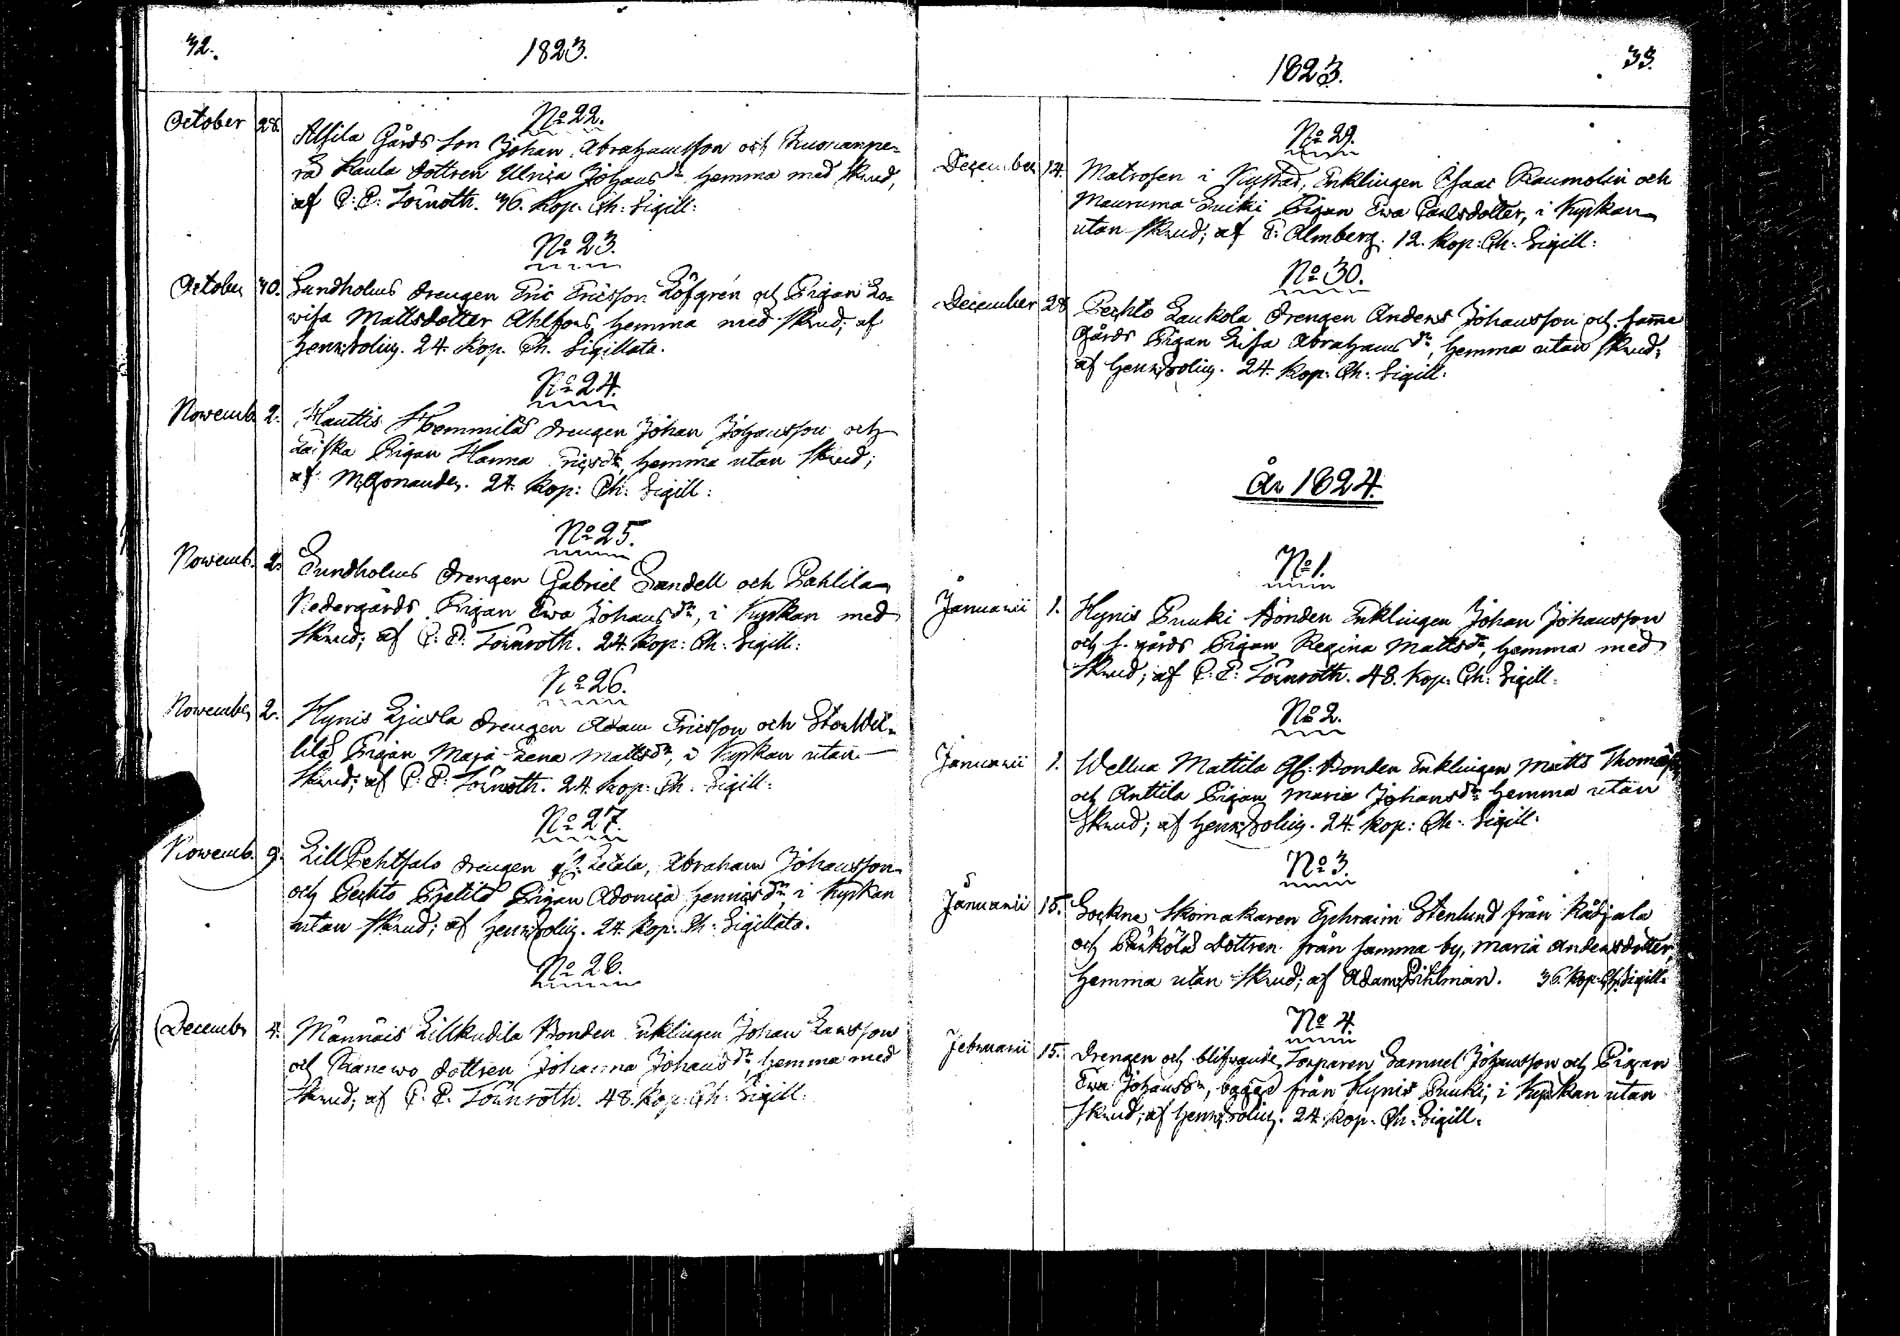 32.
1823.
No 22.
October 28. Alsila Gårds Son Johan Abrahamsson och
Paula dottren Ulrica Johansdr hemma med skrud,
af C: E: Lönroth. 36. Kop. Ch: Sigill:
No 23.
October 30. Sundholms drengen Eric Ericsson Löfgrén och Pigan Lo-
visa Mattsdotter Ahlfors, hemma med skrud; af
Henr: Polin. 24. Kop. Ch. Sigillata.
No 24.
Novemb. 2. Hauttis Hemmilä drengen Johan Johansson och
Pigan Hanna Ericsdr, hemma utan skrud;
af 24. Kop: Ch: Sigill:
No 25.
Novemb. 2. Sundholms drengen Gabriel Sandell och Pahlila
Nedergårds Pigan Ewa Johansdr, i Kyrkan med
skrud; af C: E: Lönroth. 24. Kop: Ch: Sigill:
No 26.
November 2. Hynis drengen Adam Ericsson och
Pigan Maja Lena Mattsdr, i Kyrkan utan
skrud; af C: E: Lönroth. 24. Kop: Ch. Sigill:
No 27.
Novemb. 9. drengen Abraham Johansson
och Pigan Hennicsdr, i Kyrkan
utan skrud; af Henr: Polin. 24. Kop: Ch: Sigillata.
No 28.
December 4. Männäis Lillkudila Bonden Enklingen Johan Larsson
och Ranewo dottren Johanna Johansdr, hemma med
skrud; af C: E: Lönroth. 48. Kop: Ch: Sigill:
33.
1823.
No 29.
December 14. Matrosen i Nystad, Enklingen Isaac Raumolin och
Mauruma Suiki Pigan Ewa Carlsdotter, i Kyrkan
utan skrud; af Almberg. 12. Kop: Ch: Sigill:
No 30.
December 28. Pechto Laukola drengen Anders Johansson och samma
Gårds Pigan Lisa Abrahamsdr, hemma utan skrud;
af Henr: Polin. 24. Kop: Ch: Sigill:
År 1824.
No 1.
Januarii 1. Hynis Puuki Bonden Enklingen Johan Johansson
och s. gårds Pigan Regina Mattsdr, hemma med
skrud; af C: E: Lönroth. 48. Kop: Ch: Sigill:
No 2.
Januarii 1. Wellua Mattila Bonden Enklingen Matts
och Anttila Pigan Maria Johansdr hemma utan
skrud; af Henr: Polin. 24. Kop: Ch: Sigill:
No 3.
Januarii 18. Sockne skomakaren Ephraim Stenlund från Kådjala
och dottren från samma by, Maria Andersdotter,
hemma utan skrud; af Adam Pihlman. 36. Kop: Ch: Sigill:
No 4.
Februarii 15. Drengen och blifvande Torparen Samuel Johansson och Pigan
Ewa Johansdr, bägge från Hynis Puuki, i Kyrkan utan
skrud; af Henr: Polin. 24. Kop: Ch: Sigill: